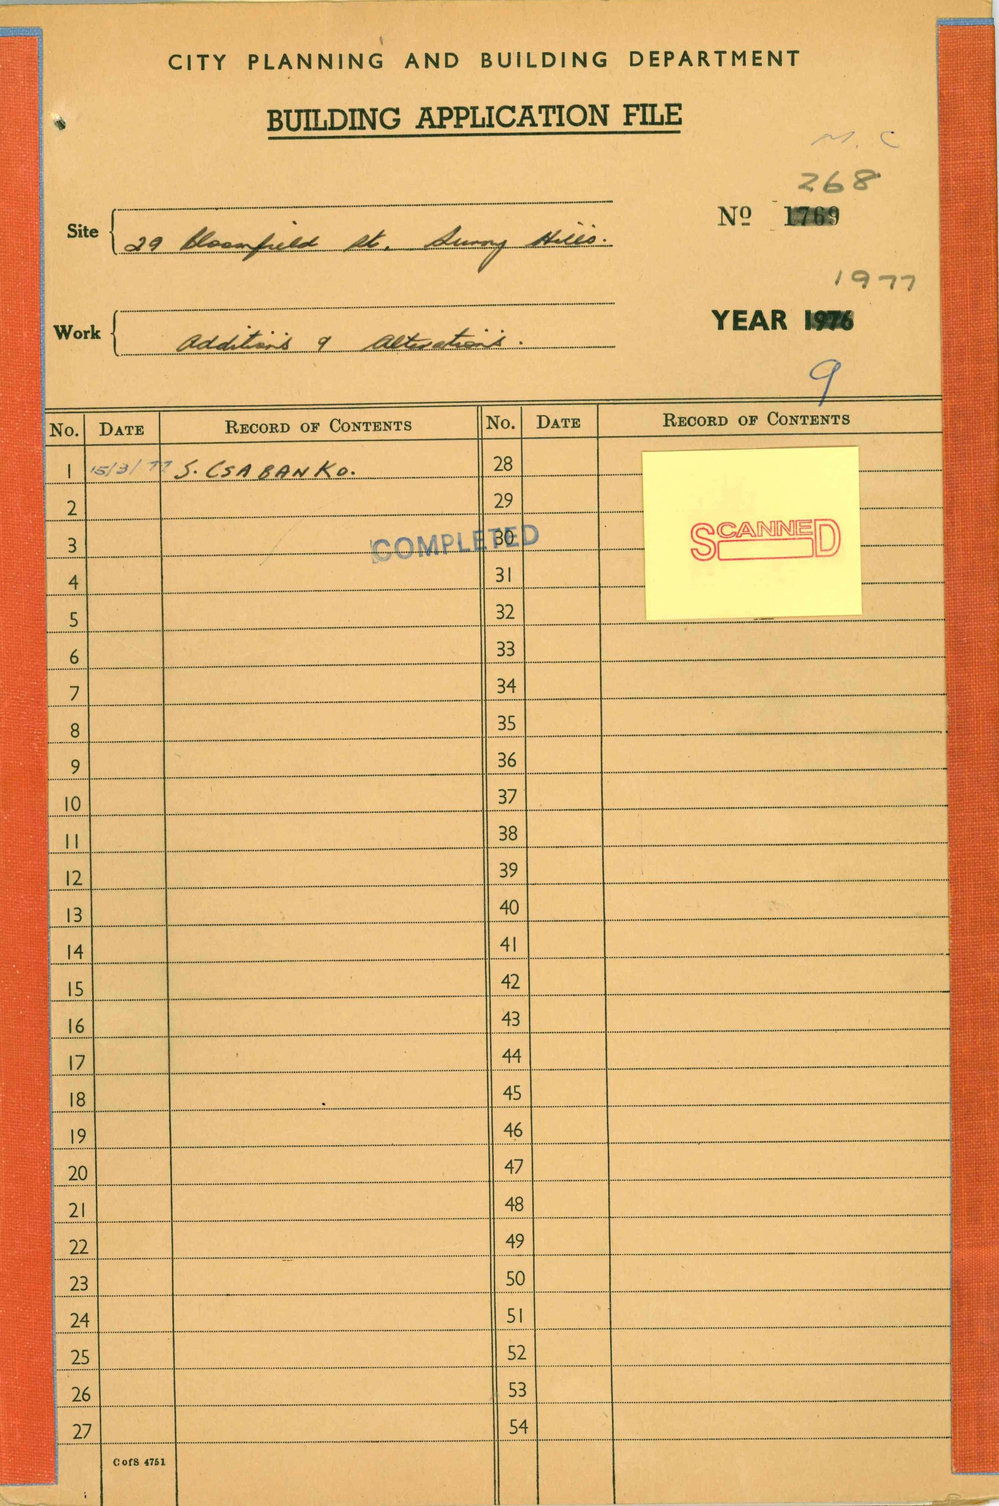 CITY PLANNING AND BUILDING DEPARTMENT
BUILDING APPLICATION FILE
M. C
268
Site 29 Bloomfield St. Surry Hills.
Nº 1769
1977
Work Additions & Alterations.
YEAR 1976
9
No. DATE RECORD OF CONTENTS No. DATE RECORD OF CONTENTS
1 15/3/77 S. CSABANKO. 28
2 29
3 COMPLETED 30
SCANNED
4 31
5 32
6 33
7 34
8 35
9 36
10 37
11 38
12 39
13 40
14 41
15 42
16 43
17 44
18 45
19 46
20 47
21 48
22 49
23 50
24 51
25 52
26 53
27 54
C of S 4751